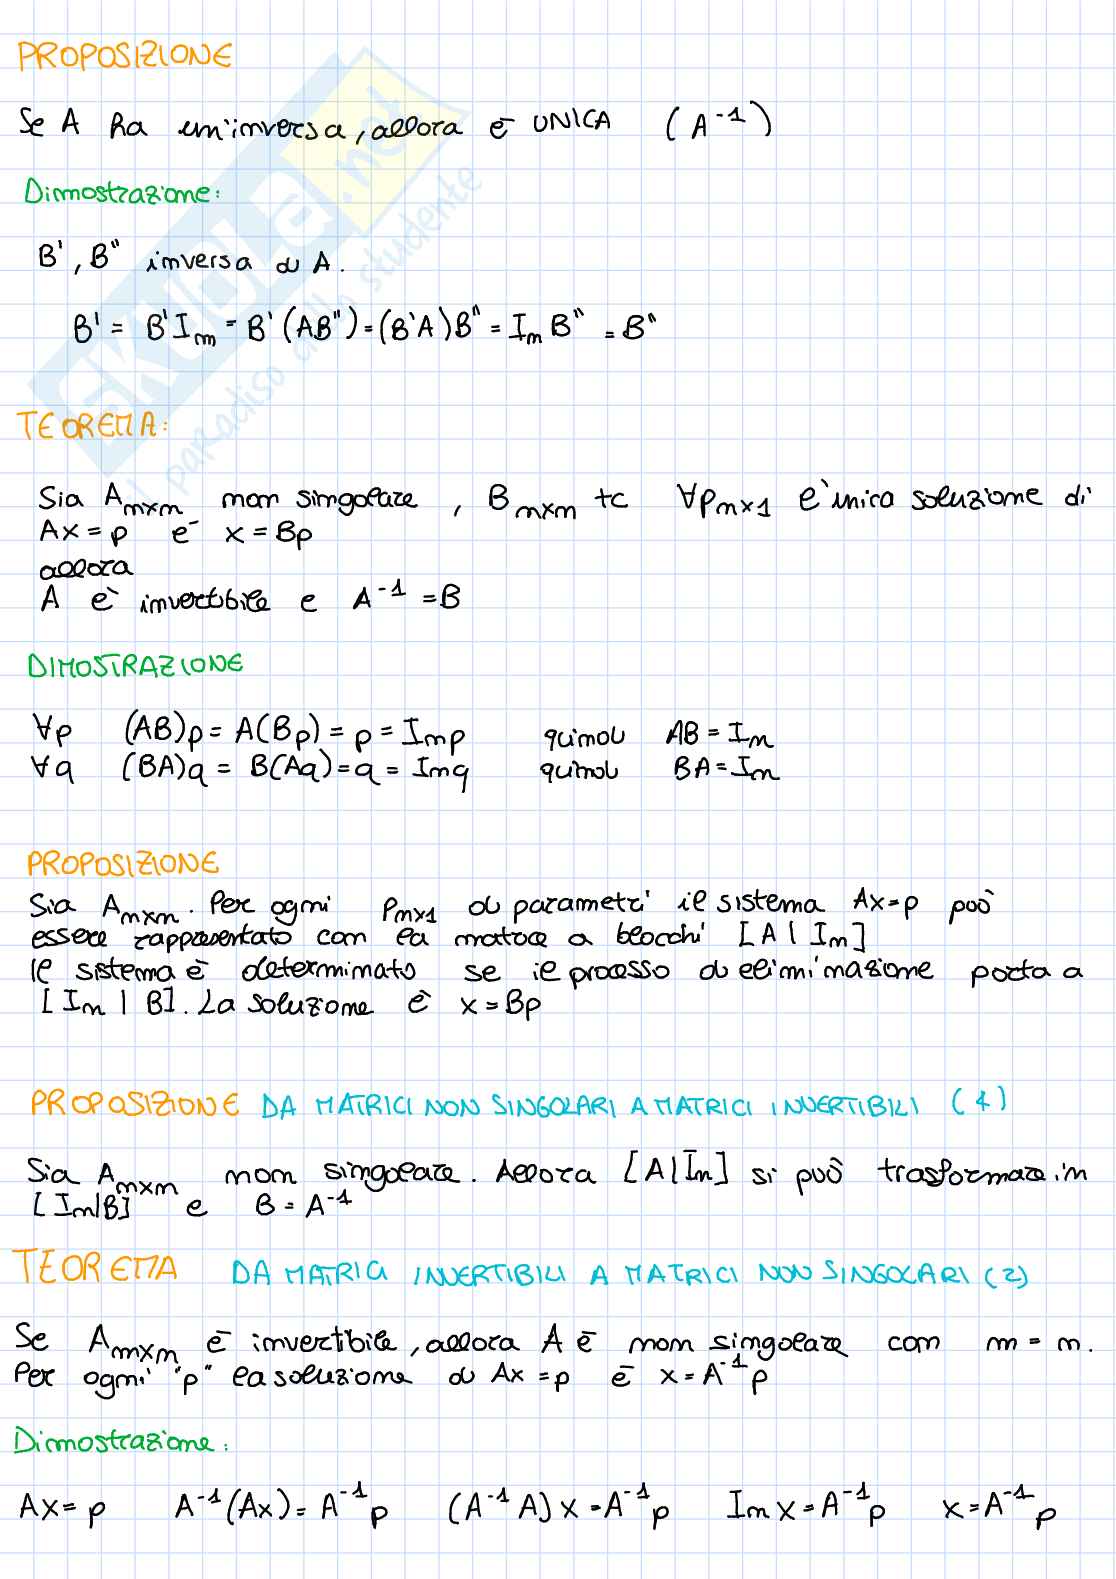 PROPOSIZIONE
Se A ha un'inversa, allora è UNICA (A⁻¹)
Dimostrazione:
B', B" inversa di A.
B' = B'Iₙ = B'(AB") = (B'A)B" = IₙB" = B"
TEOREMA:
Sia Aₙₓₙ non singolare, Bₙₓₙ tc ∀pₙₓ₁ l'unica soluzione di
Ax = p è x = Bp
allora
A è invertibile e A⁻¹ = B
DIMOSTRAZIONE
∀p (AB)p = A(Bp) = p = Iₙp quindi AB = Iₙ
∀q (BA)q = B(Aq) = q = Iₙq quindi BA = Iₙ
PROPOSIZIONE
Sia Aₙₓₙ. Per ogni pₙₓ₁ di parametri il sistema Ax=p può
essere rappresentato con la matrice a blocchi [A | Iₙ]
Il sistema è determinato se il processo di eliminazione porta a
[Iₙ | B]. La soluzione è x = Bp
PROPOSIZIONE DA MATRICI NON SINGOLARI A MATRICI INVERTIBILI (1)
Sia Aₙₓₙ non singolare. Allora [A|Iₙ] si può trasformare in
[Iₙ|B] e B = A⁻¹
TEOREMA DA MATRICI INVERTIBILI A MATRICI NON SINGOLARI (2)
Se Aₘₓₙ è invertibile, allora A è non singolare con m = n.
Per ogni "p" la soluzione di Ax = p è x = A⁻¹p
Dimostrazione:
Ax = p A⁻¹(Ax) = A⁻¹p (A⁻¹A)x = A⁻¹p Iₙx = A⁻¹p x = A⁻¹p
SKUOLA.net
il paradiso dello studente